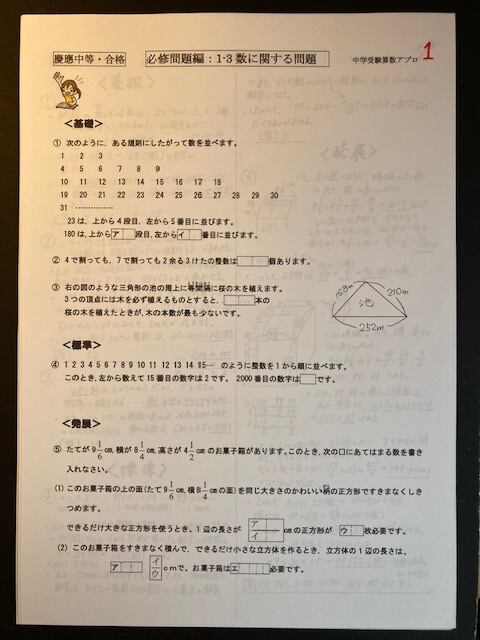 慶應中等・合格
必修問題編：1-3 数に関する問題
中学受験算数アプロ 1
＜基礎＞
① 次のように，ある規則にしたがって数を並べます。
1 2 3
4 5 6 7 8 9
10 11 12 13 14 15 16 17 18
19 20 21 22 23 24 25 26 27 28 29 30
31 ……………
23 は，上から 4 段目，左から 5 番目に並びます。
180 は，上から ア 段目，左から イ 番目に並びます。
② 4 で割っても，7 で割っても 2 余る 3 けたの整数は 個あります。
③ 右の図のような三角形の池の周上に等間隔に桜の木を植えます。
3 つの頂点には木を必ず植えるものとすると， 本の
桜の木を植えたときが，木の本数が最も少ないです。
168m 池 210m
252m
＜標準＞
④ 1 2 3 4 5 6 7 8 9 10 11 12 13 14 15… のように整数を 1 から順に並べます。
このとき，左から数えて 15 番目の数字は 2 です。 2000 番目の数字は です。
＜発展＞
⑤ たてが 9 1/6 cm，横が 8 1/4 cm，高さが 4 1/2 cm のお菓子箱があります。このとき，次の□にあてはまる数を書き
入れなさい。
(1) このお菓子箱の上の面（たて 9 1/6 cm，横 8 1/4 cm の面）を同じ大きさのかわいい柄の正方形ですきまなくしき
つめます。
できるだけ大きな正方形を使うとき，1 辺の長さが ア/イ cm の正方形が ウ 枚必要です。
(2) このお菓子箱をすきまなく積んで，できるだけ小さな立方体を作るとき，立方体の 1 辺の長さは，
ア イ/ウ ｃｍで，お菓子箱は エ 必要です。